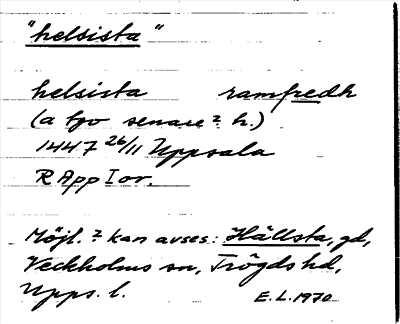 "helsista"
helsista ramfredh
(a tgo senare? h.)
1447 26/11 Uppsala
R App I or.
Möjl.? kan avses: Hällsta, gd,
Veckholms sn, Trögds hd,
Upps. l.
E.L. 1970